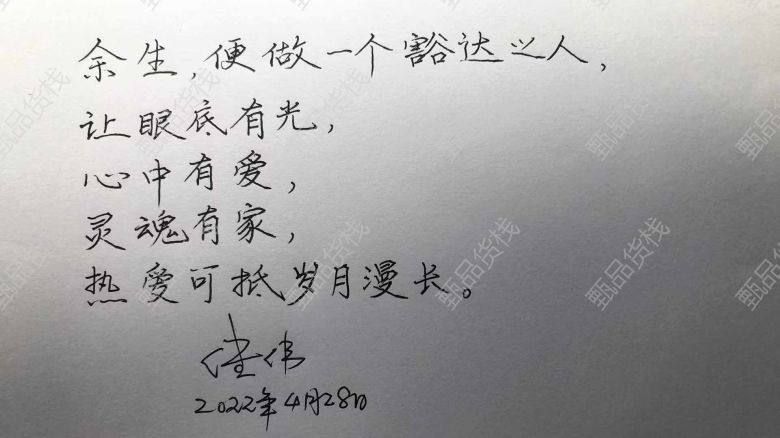 余生,便做一个豁达之人,
让眼底有光,
心中有爱,
灵魂有家,
热爱可抵岁月漫长。
佳伟
2022年4月28日
甄品货栈
甄品货栈
甄品货栈
甄品货栈
甄品货栈
甄品货栈
甄品货栈
甄品货栈